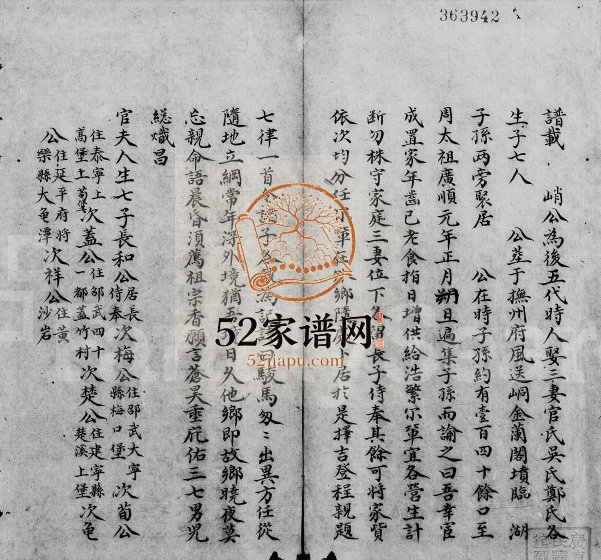 363942
譜載 峭公為後五代時人娶三妻官氏吳氏鄭氏各
生子七人 公塟于撫州府風送峒金蘭閣墳臨 湖
子孫兩旁聚居 公在時子孫約有壹百四十餘口至
周太祖廣順元年正月朔旦遍集子孫而諭之曰吾幸官
成置家年齒已老食指日增供給浩繁尔軰宜各營生計
斷勿株守家庭三妻位下各留長子侍奉其餘可將家貲
依次均分任尔軰 鄉 居於是擇吉登程親題
七律一首 諸子各 為記 駿馬匆匆出異方任從
隨地立綱常年深外境猶吾 日久他鄉即故鄉曉夜莫
忘親命語晨昏須薦祖宗香願言蒼昊垂庇佑三七男兒
総熾昌
官夫人生七子長和公居長侍奉次梅公住邵武大寧縣梅口堡 次荀公
住泰寧上高堡土 次盖公住邵武四十一都蓋竹村次楚公住建寧縣楚溪上堡次龟
公住延平府將樂縣大龟潭次祥公住黄沙岩
52家谱网
52jiapu.com